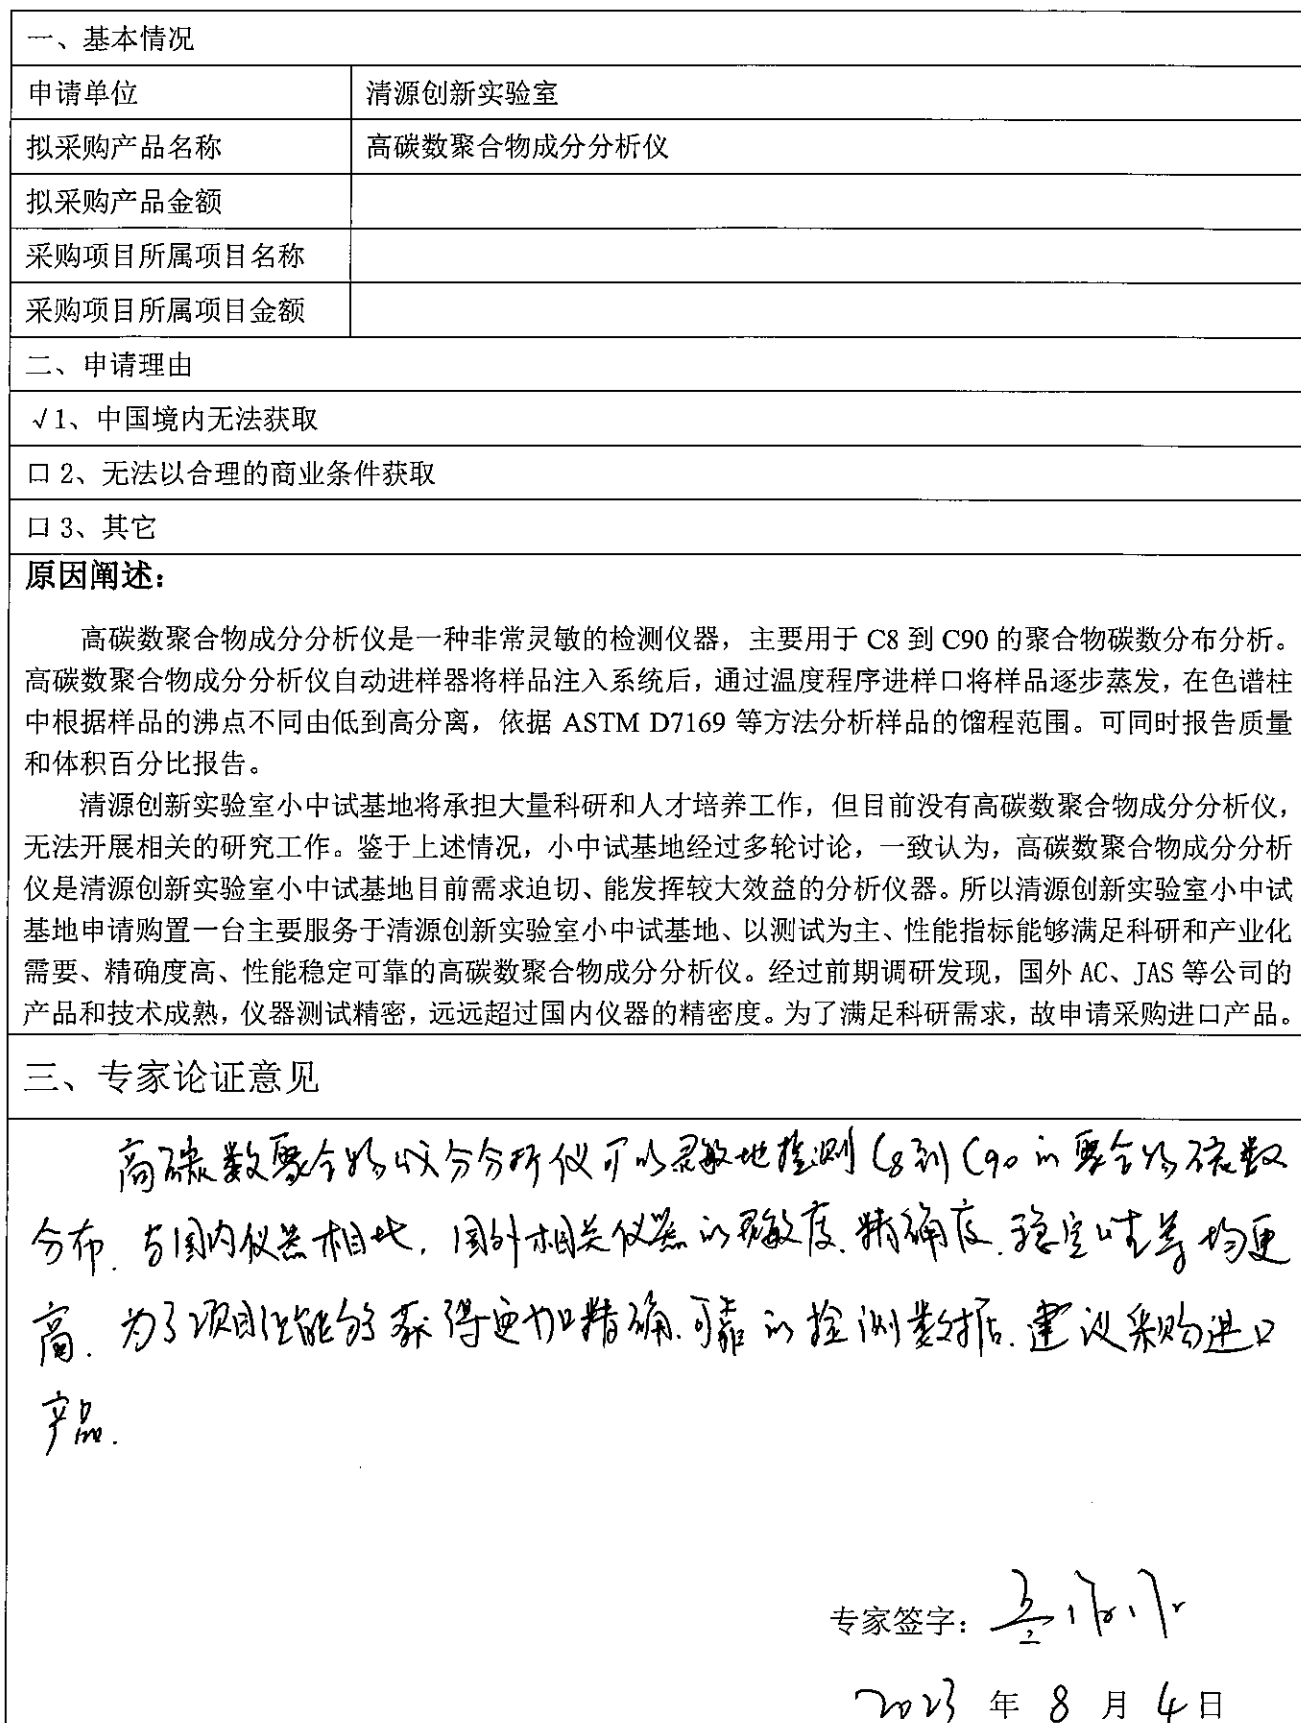 一、基本情况
申请单位 清源创新实验室
拟采购产品名称 高碳数聚合物成分分析仪
拟采购产品金额
采购项目所属项目名称
采购项目所属项目金额
二、申请理由
√1、中国境内无法获取
口2、无法以合理的商业条件获取
口3、其它
原因阐述：
高碳数聚合物成分分析仪是一种非常灵敏的检测仪器，主要用于 C8 到 C90 的聚合物碳数分布分析。
高碳数聚合物成分分析仪自动进样器将样品注入系统后，通过温度程序进样口将样品逐步蒸发，在色谱柱
中根据样品的沸点不同由低到高分离，依据 ASTM D7169 等方法分析样品的馏程范围。可同时报告质量
和体积百分比报告。
清源创新实验室小中试基地将承担大量科研和人才培养工作，但目前没有高碳数聚合物成分分析仪，
无法开展相关的研究工作。鉴于上述情况，小中试基地经过多轮讨论，一致认为，高碳数聚合物成分分析
仪是清源创新实验室小中试基地目前需求迫切、能发挥较大效益的分析仪器。所以清源创新实验室小中试
基地申请购置一台主要服务于清源创新实验室小中试基地、以测试为主、性能指标能够满足科研和产业化
需要、精确度高、性能稳定可靠的高碳数聚合物成分分析仪。经过前期调研发现，国外 AC、JAS 等公司的
产品和技术成熟，仪器测试精密，远远超过国内仪器的精密度。为了满足科研需求，故申请采购进口产品。
三、专家论证意见
高碳数聚合物成分分析仪可以灵敏地检测C8到C90的聚合物碳数
分布、与国内仪器相比，国外相关仪器的灵敏度、精确度、稳定性等均更
高. 为了项目能够获得更加精确、可靠的检测数据、建议采购进口
产品.
专家签字：
2023 年 8 月 4 日